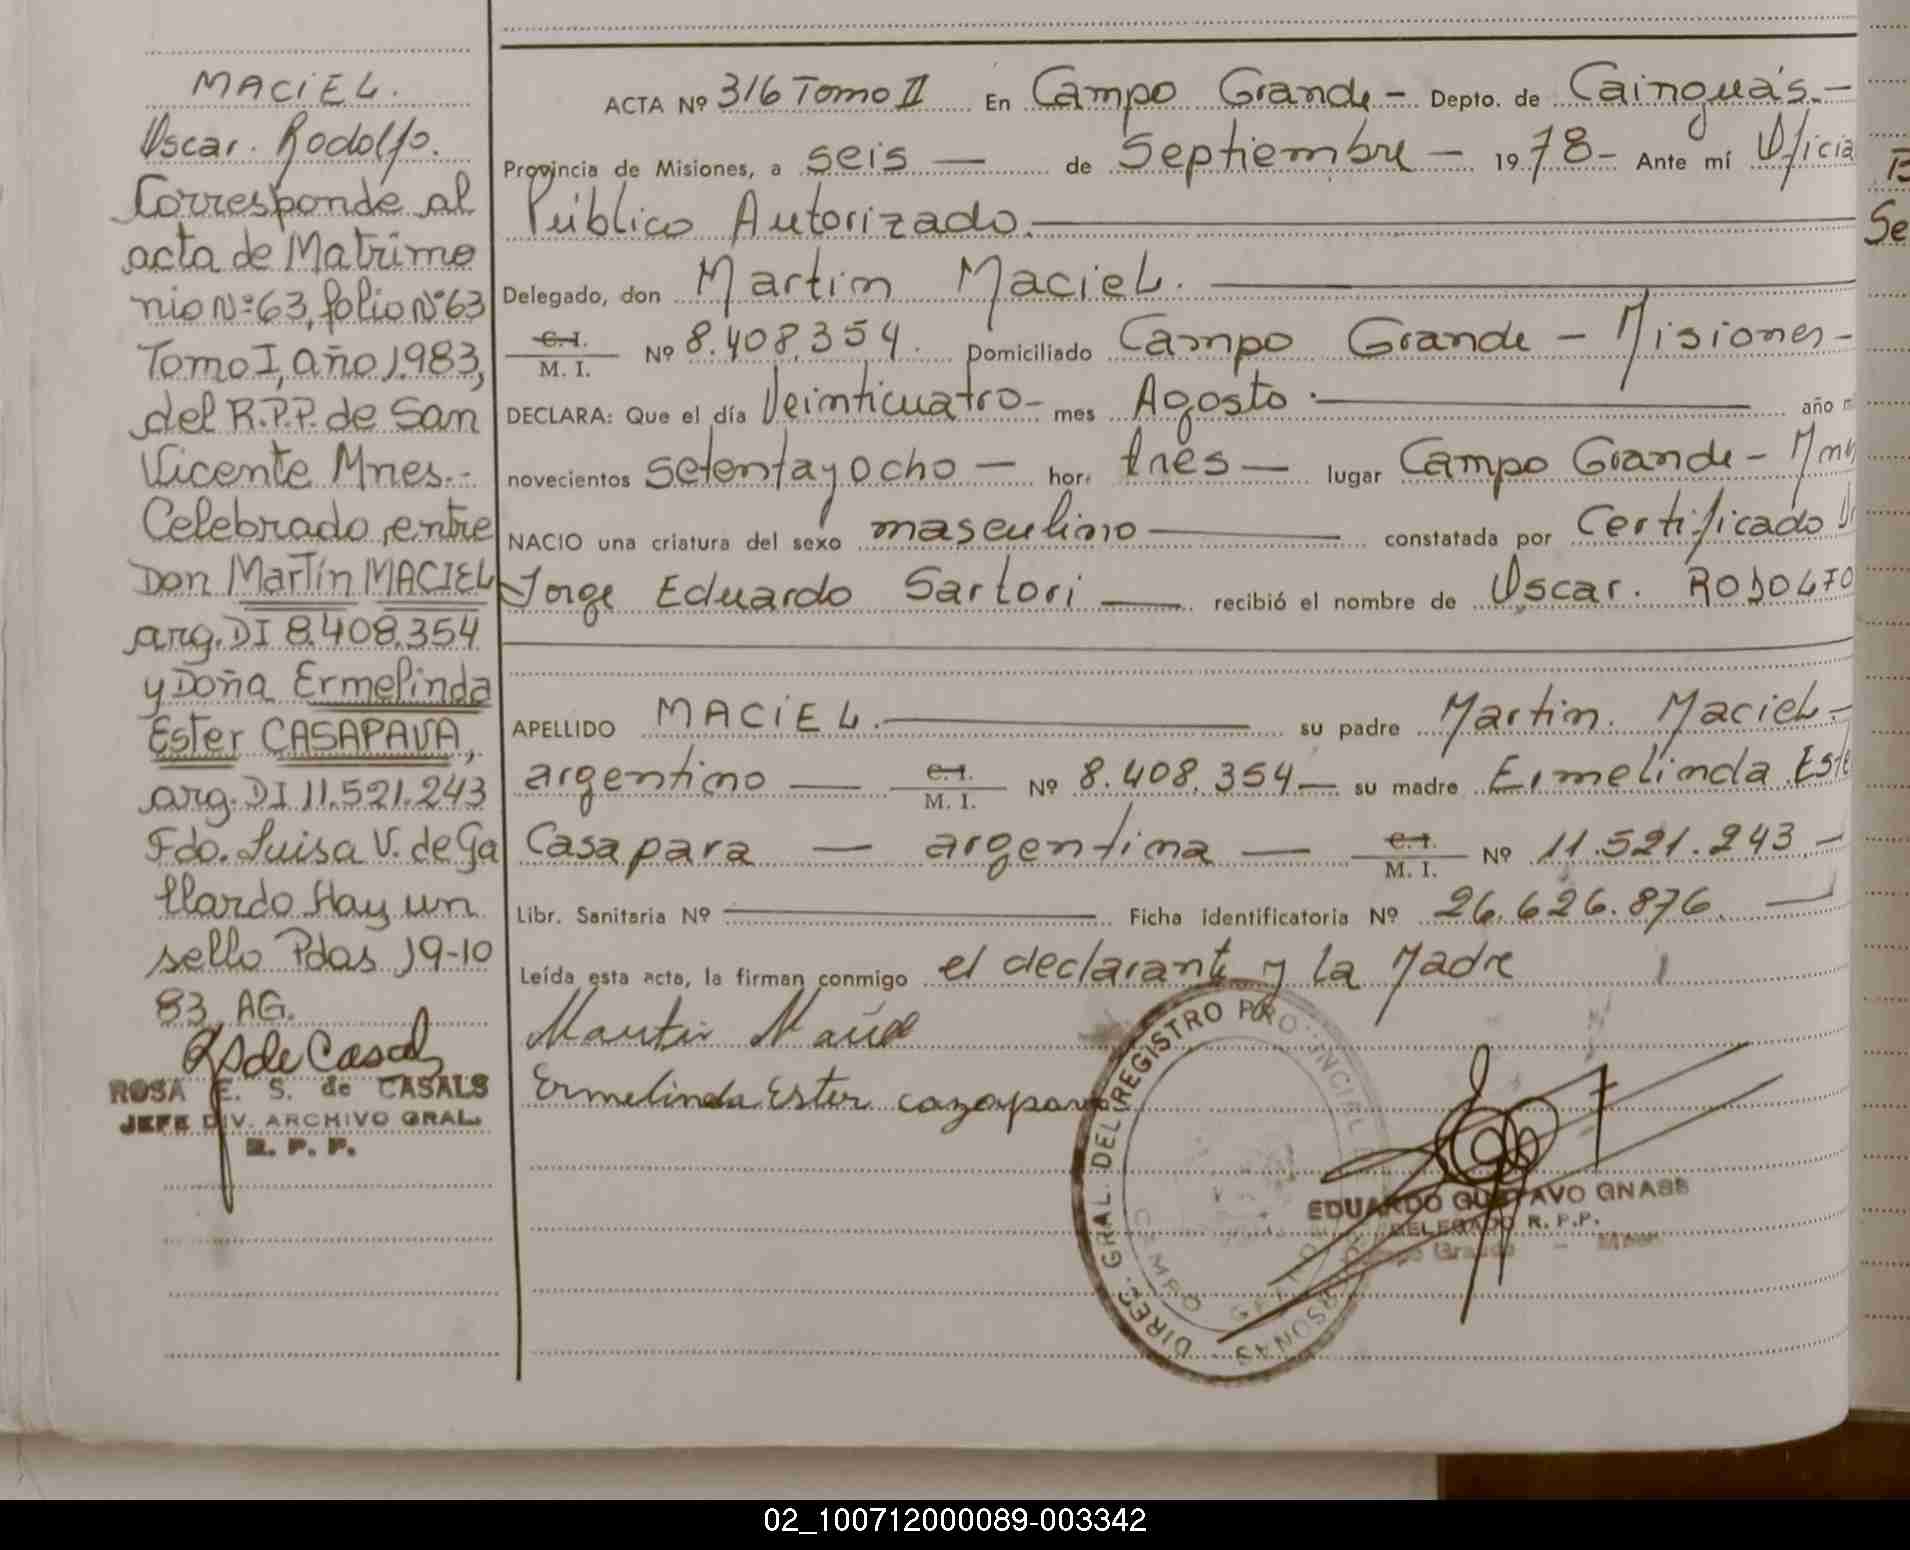 MACIEL.
Oscar. Rodolfo.
Corresponde al
acta de Matrimo
nio Nº 63, folio Nº 63
Tomo I, año 1.983,
del R.P.P. de San
Vicente Mnes.-
Celebrado, entre
Don Martín MACIEL
arg. DI 8.408.354
y Doña Ermelinda
Ester CASAPAVA,
arg. DI 11.521.243
Fdo. Luisa V. de Ga
llardo Hay un
sello Pdas 19-10
83. AG.
ROSA E. S. de CASALS
JEFE DIV. ARCHIVO GRAL.
R. P. P.
ACTA Nº 316 Tomo II En Campo Grande - Depto. de Cainguás.-
Provincia de Misiones, a seis — de Septiembre — 19 78 - Ante mí Oficia
Público Autorizado.
Delegado, don Martin Maciel.
C.I.
M. I. Nº 8.408.354. Domiciliado Campo Grande - Misiones -
DECLARA: Que el día Veinticuatro - mes Agosto. año
novecientos setentayocho — hor. tres — lugar Campo Grande -
NACIO una criatura del sexo masculino — constatada por Certificado
Jorge Eduardo Sartori — recibió el nombre de Oscar. RODOLFO
APELLIDO MACIEL. — su padre Martin. Maciel -
argentino — C.I.
M. I. Nº 8.408.354 — su madre Ermelinda Este
Casapara — argentina — C.I.
M. I. Nº 11.521.243.-
Libr. Sanitaria Nº — Ficha identificatoria Nº 26.626.876. —
Leída esta acta, la firman conmigo el declarante y la Madre
Ermelinda Ester cazapava
DIREC. GRAL. DEL REGISTRO PROVINCIAL DE PERSONAS
CAMPO GRANDE
EDUARDO GUSTAVO GNASS
DELEGADO R. P.P.
Campo Grande - Mnes
Se
02_100712000089-003342